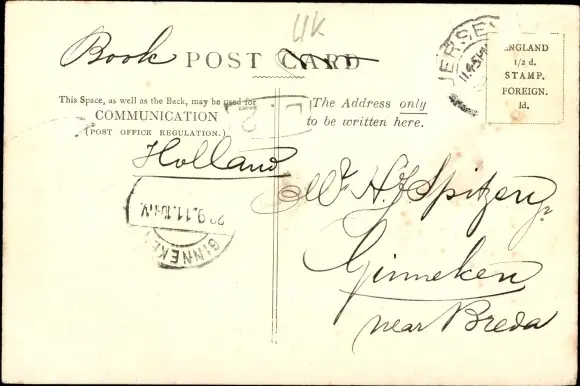 UK
Book POST CARD
JERSEY
11.45
ENGLAND
1/2 d.
STAMP.
FOREIGN.
1d.
This Space, as well as the Back, may be used for
COMMUNICATION
(POST OFFICE REGULATION.)
The Address only
to be written here.
L.2
Holland
Mr H. J. Spitzen Jr
Ginneken
near Breda
9.11.10
GINNEKEN